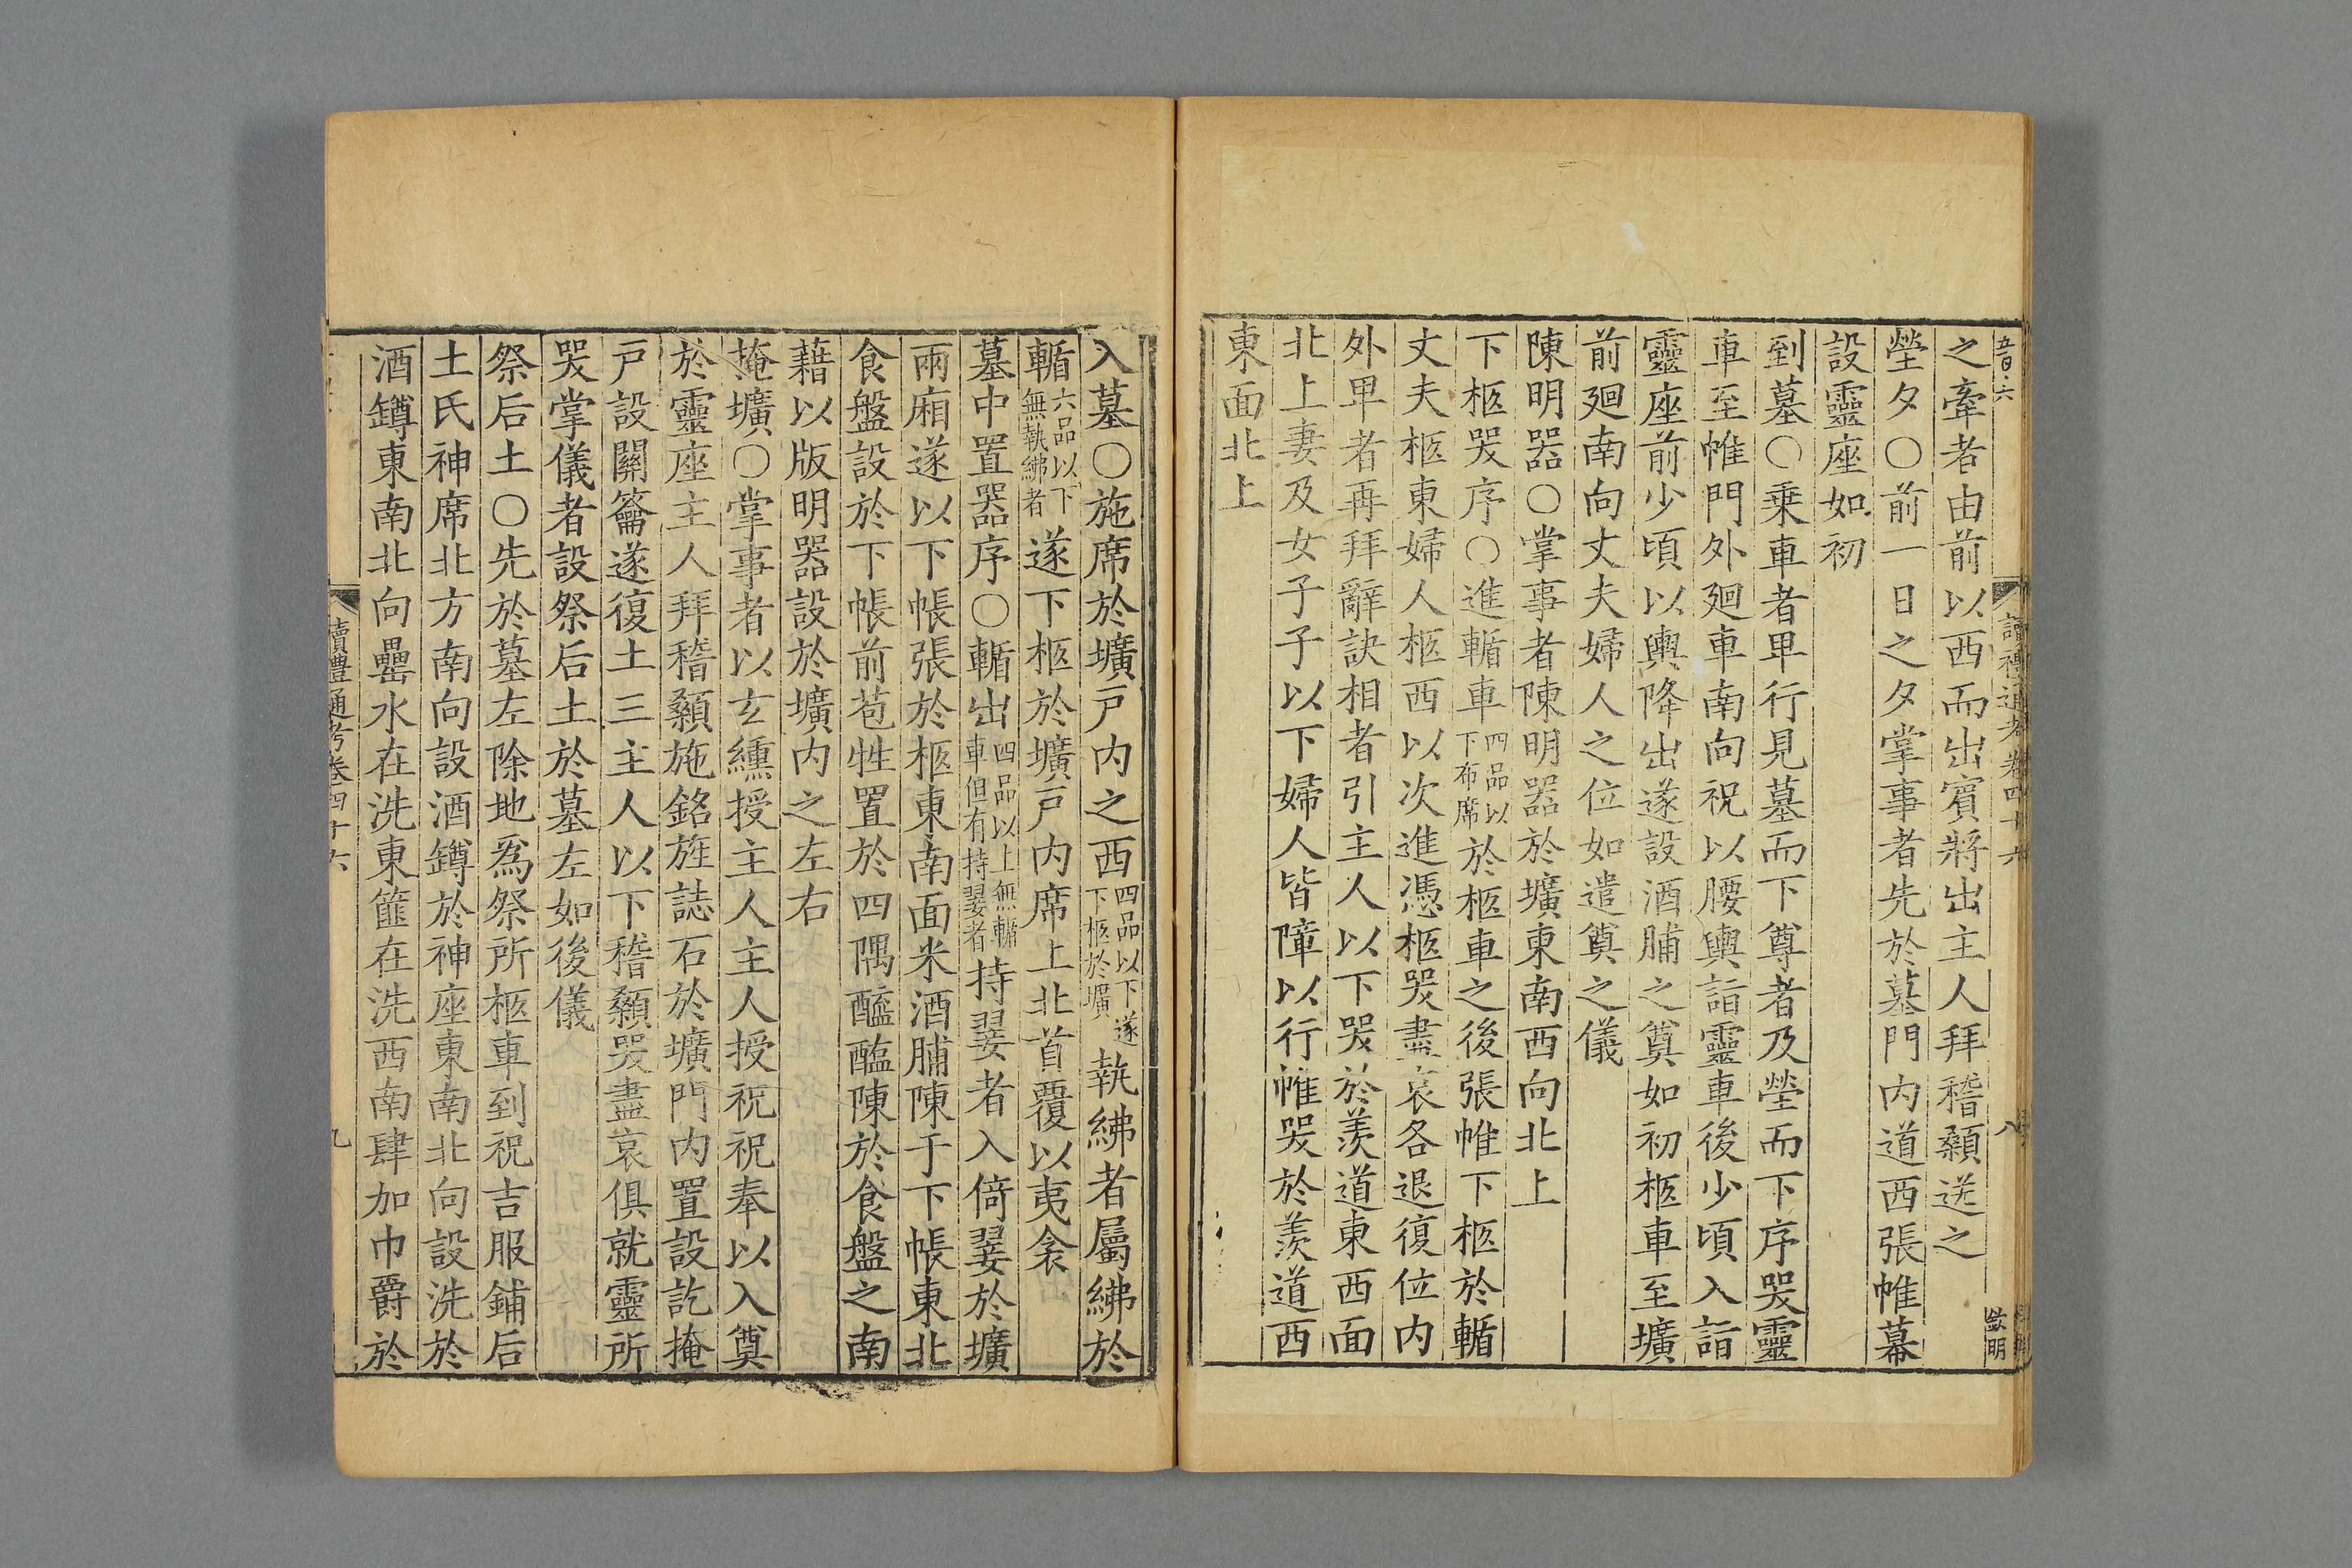 五百六
讀禮通考卷四十六
八
歐明
之牽者由前以西而出賓將出主人拜稽顙送之
塋夕○前一日之夕掌事者先於墓門內道西張帷幕
設靈座如初
到墓○乘車者卑行見墓而下尊者及塋而下序哭靈
車至帷門外廻車南向祝以腰輿詣靈車後少頃入詣
靈座前少頃以輿降出遂設酒脯之奠如初柩車至壙
前廻南向丈夫婦人之位如遣奠之儀
陳明器○掌事者陳明器於壙東南西向北上
下柩哭序○進輴車四品以下布席於柩車之後張帷下柩於輴
丈夫柩東婦人柩西以次進憑柩哭盡哀各退復位內
外卑者再拜辭訣相者引主人以下哭於羨道東西面
北上妻及女子子以下婦人皆障以行帷哭於羨道西
東面北上
入墓○施席於壙戶內之西四品以下遂下柩於壙執紼者屬紼於
輴六品以下無執紼者遂下柩於壙戶內席上北首覆以夷衾
墓中置器序○輴出四品以上無輴車但有持翣者持翣者入倚翣於壙
兩廂遂以下帳張於柩東南面米酒脯陳于下帳東北
食盤設於下帳前苞牲置於四隅醯醢陳於食盤之南
藉以版明器設於壙內之左右
掩壙○掌事者以玄纁授主人主人授祝祝奉以入奠
於靈座主人拜稽顙施銘旌誌石於壙門內置設訖掩
戶設關籥遂復土三主人以下稽顙哭盡哀俱就靈所
哭掌儀者設祭后土於墓左如後儀
祭后土○先於墓左除地為祭所柩車到祝吉服鋪后
土氏神席北方南向設酒罇於神座東南北向設洗於
酒罇東南北向罍水在洗東篚在洗西南肆加巾爵於
讀禮通考卷四十六
九